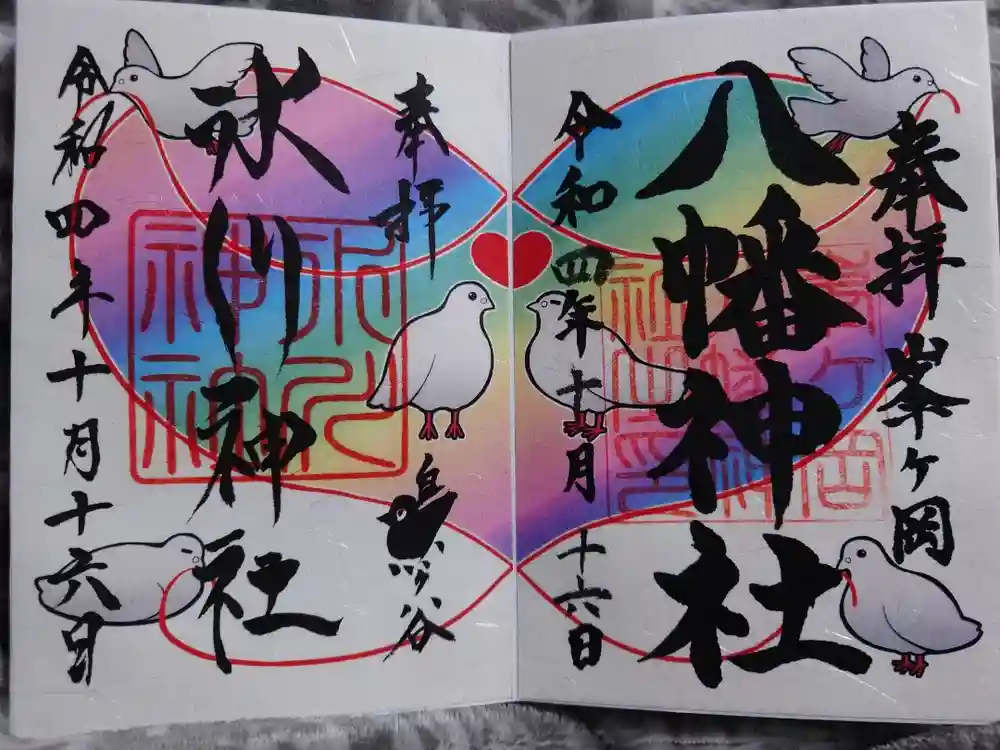 奉拝 峯ヶ岡
八幡神社
令和四年十月十六日
奉拝 鳩ヶ谷
氷川神社
令和四年十月十六日
氷川
神社